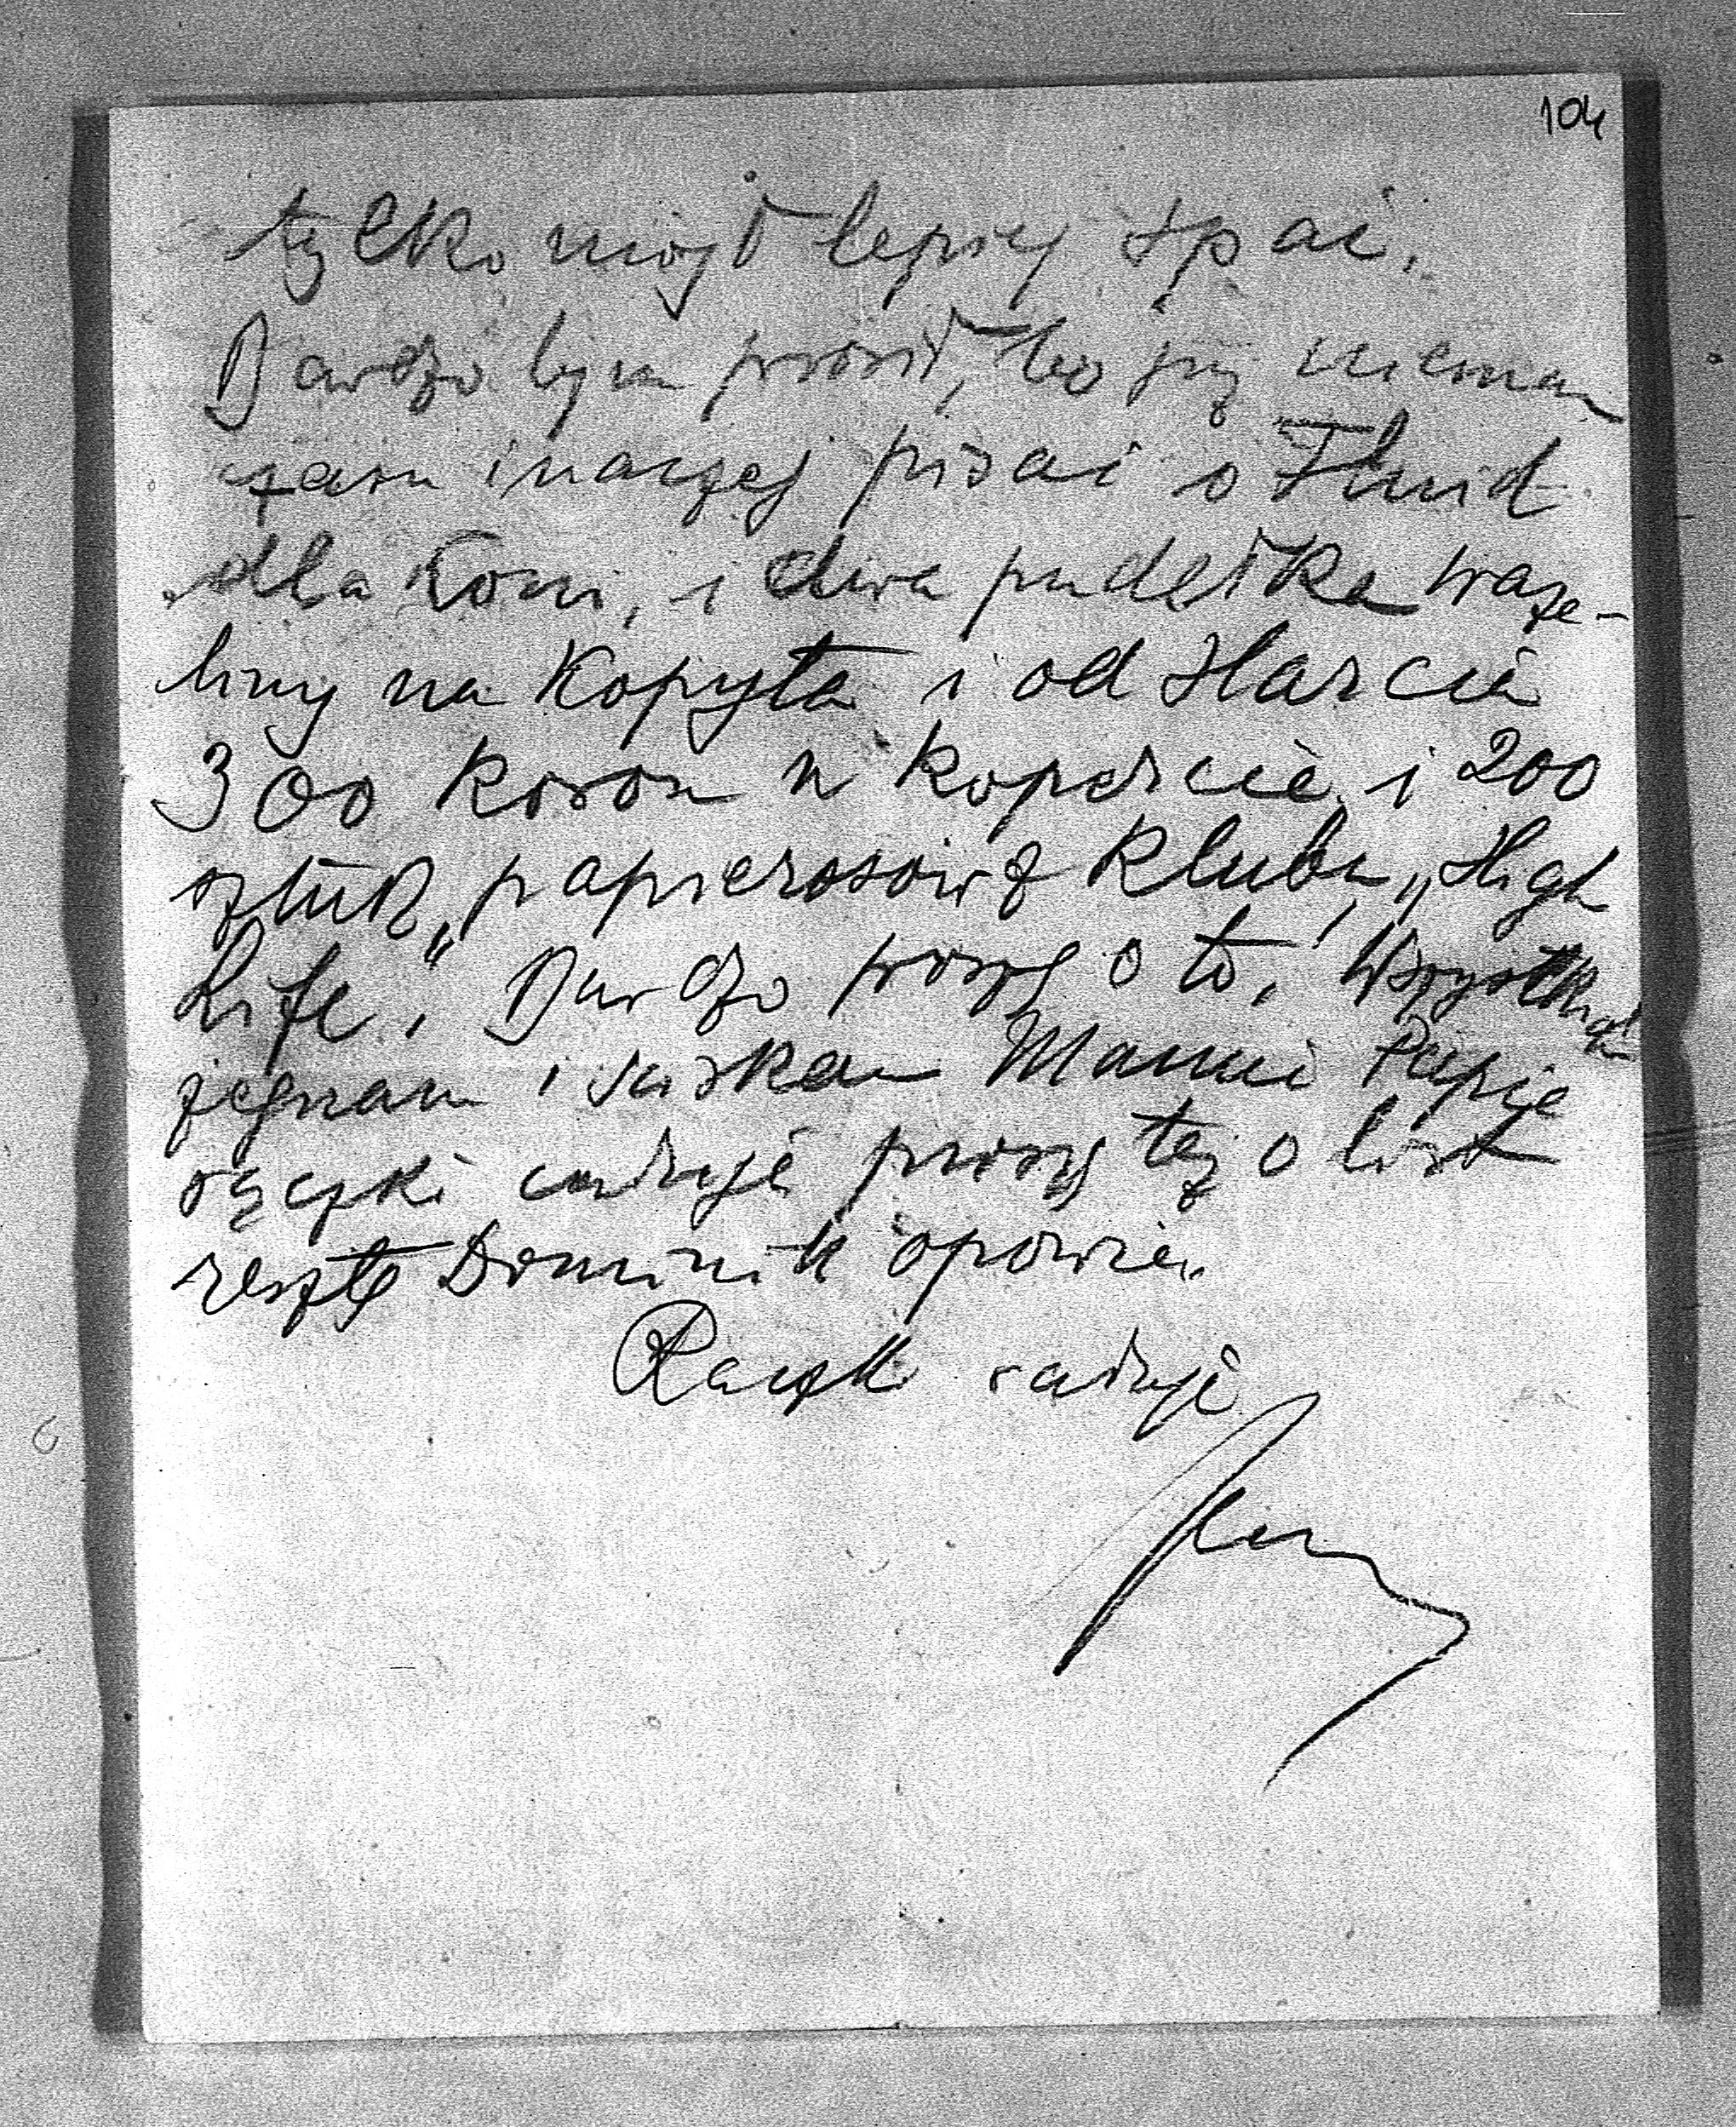 104
tylko mógł lepiej spać.
Bardzo bym prosił, bo już niemam
czasu inaczej pisać o Fluid
dla koni, i dwa pudełka waze-
liny na Kopyta i od Harcia
300 Koron w kopercie, i 200
sztuk papierosów z Klubu, „High
Life." Bardzo proszę o to, Wszystkich
żegnam i ściskam Mamie Papie
rączki całuję proszę też o list
resztę Dominik opowie.
Rączki całuję
Jerzy